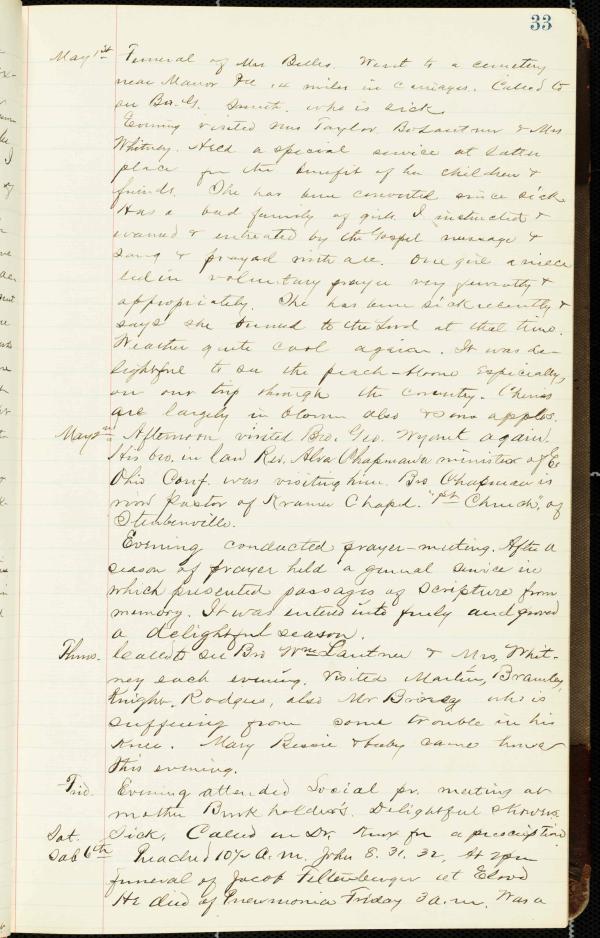 33
May 1st Funeral of Mrs Belles. Went to a cemetery
near Manor Pa 14 miles in Carriages. Called to
see Bro. G. Smith, who is sick
Evening visited Mrs Taylor, Bro Lautner & Mrs
Whitney. Held a special service at latter
place for the benefit of her children &
friends. She has been converted since sick
Has a bad family of girls. I instructed &
warned & entreated by the Gospel message &
sang & prayed with all. One girl a niece
led in voluntary prayer very fervently &
appropriately. She has been sick recently &
says she turned to the Lord at that time.
Weather quite cool again. It was de-
lightful to see the peach-bloom especially,
on our trip through the country. Cherries
are largely in bloom also & some apples.
May 2nd Afternoon visited Bro. Geo. Wyant again.
His bro. in law Rev. Alva Chapman a minister of E.
Ohio Conf. was visiting him. Bro Chapman is
now Pastor of Kramer Chapel. "1st Church" of
Steubenville.
Evening conducted prayer-meeting. After a
season of prayer held a general service in
which presented passages of Scripture from
memory. It was entered into freely and proved
a delightful season.
Thurs. Called to see Bro Wm Lautner & Mrs. Whit-
ney each evening. Visited Martin, Bramley,
Knight, Rodgers, also Mr who is
suffering from some trouble in his
Knee. Mary Bessie & baby came home
this evening.
Frid. Evening attended Social pr. meeting at
mother Burkholder's. Delightful showers.
Sat. Sick. Called in Dr. Knox for a prescription
Sab 6th Preached 10½ A.m. John 8. 31. 32. At 2pm
funeral of Jacob Feltenberger at
He died of Pneumonia Friday 3 a.m. Was a